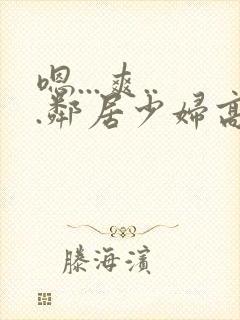 嗯...爽..
.鄰居少婦高
滕海濱